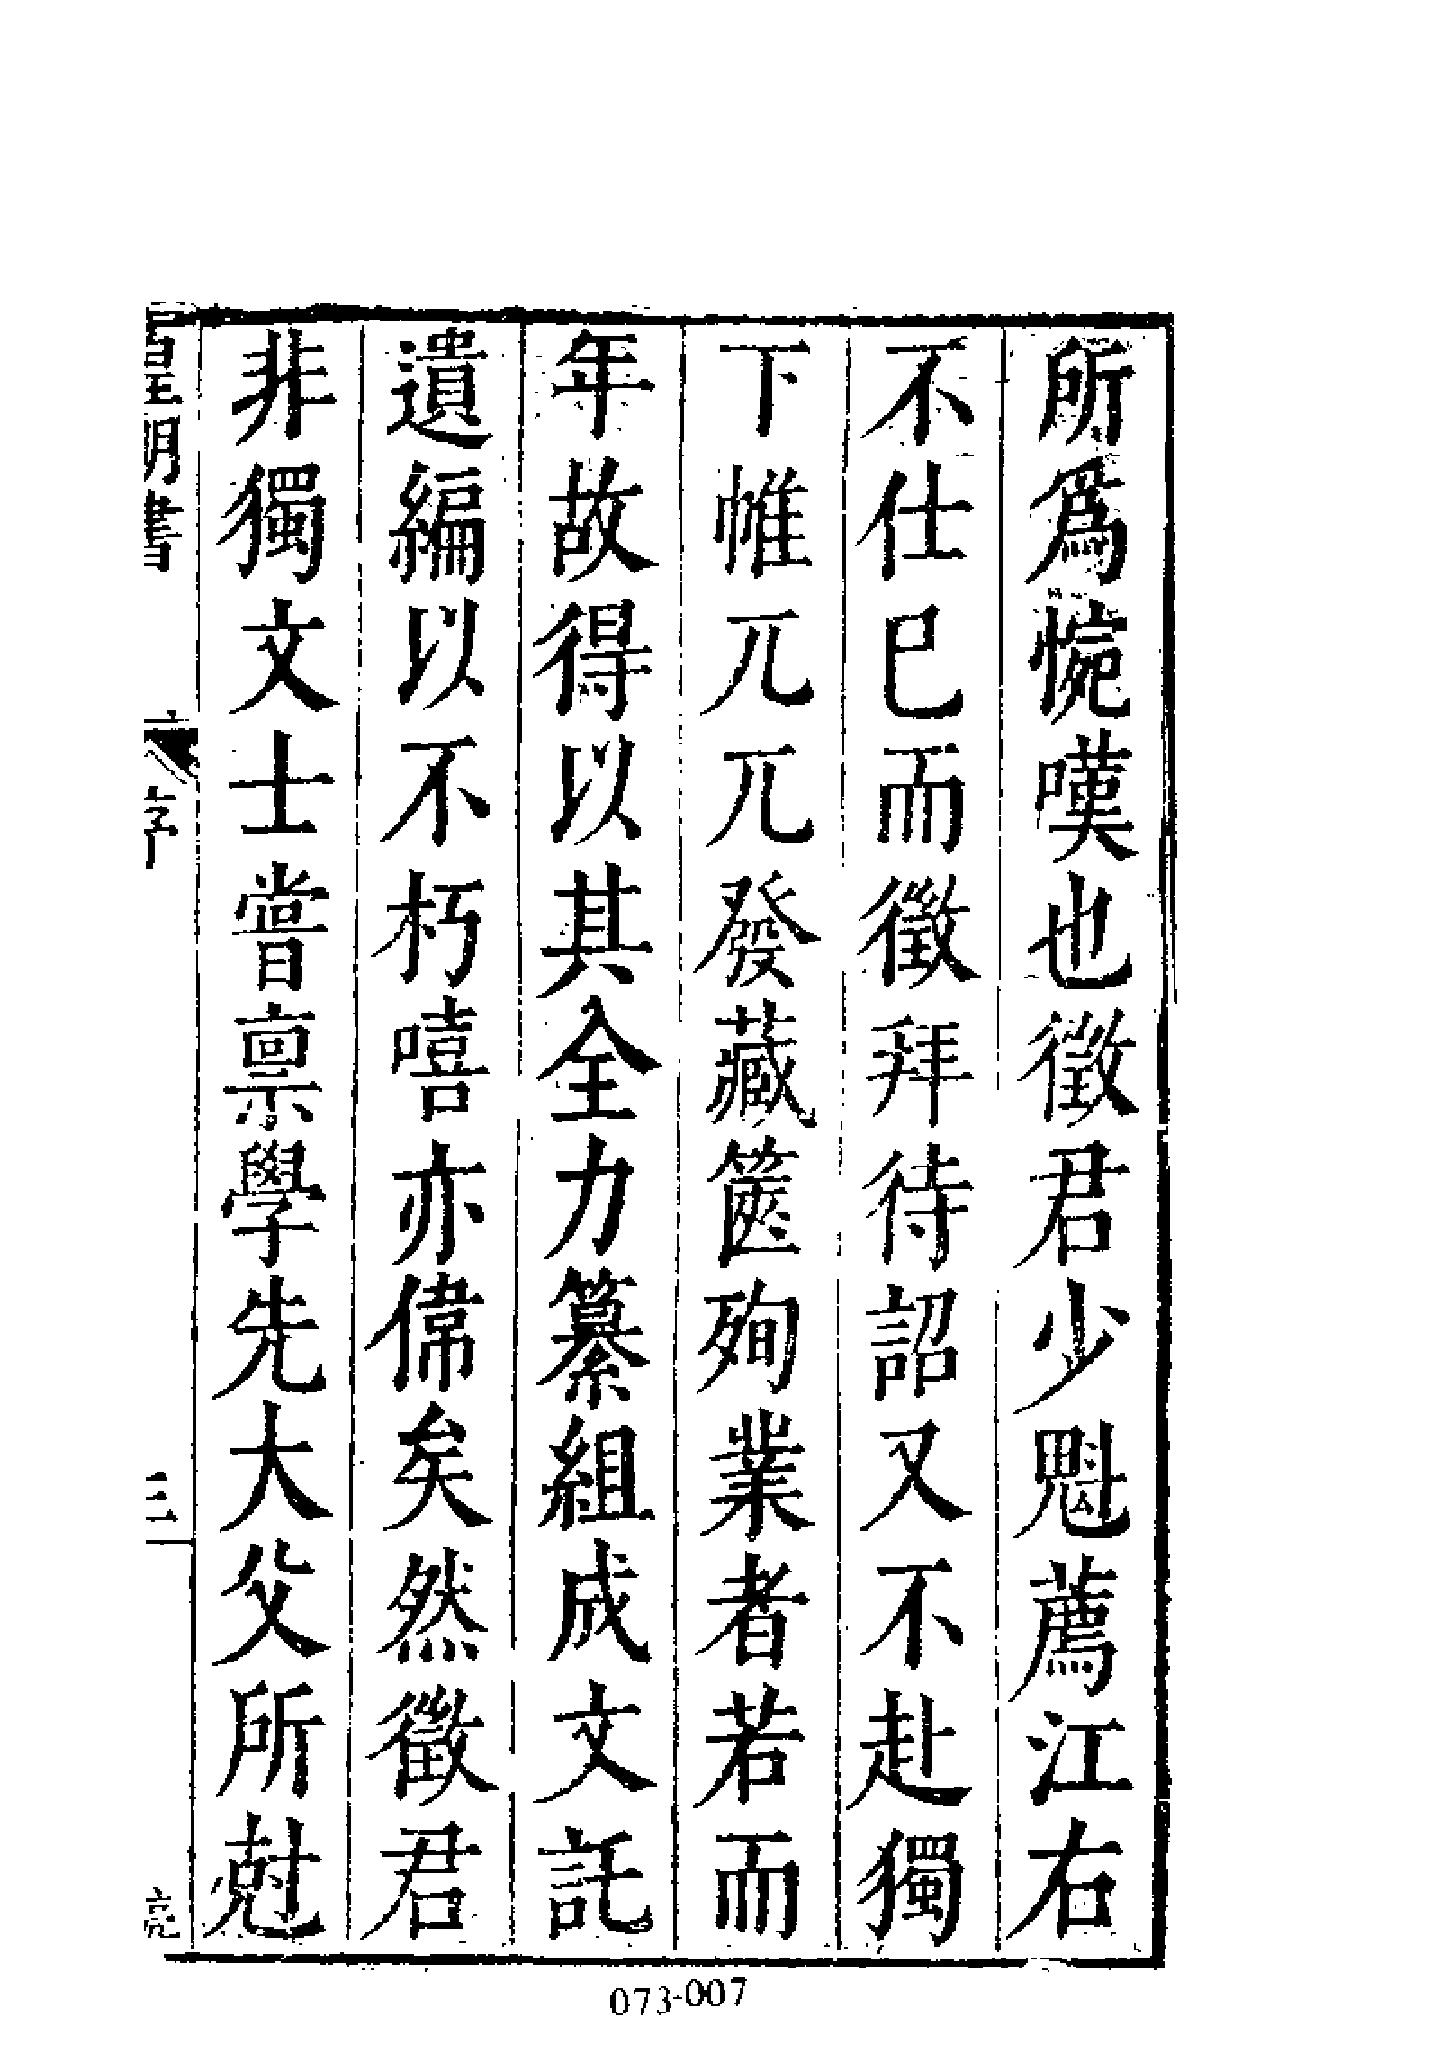 所爲惋嘆也徵君少魁薦江右
不仕已而徵拜待詔又不赴獨
下帷兀兀發藏篋殉業者若而
年故得以其全力纂組成文託
遺編以不朽嘻亦偉矣然徵君
非獨文士嘗禀學先大父所
皇明書
序
三
亮
073-007